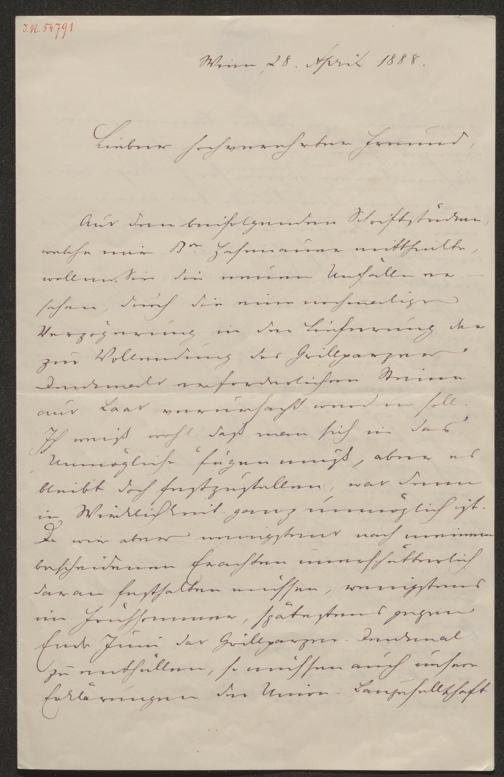 J.N. 54791
Wien, 28. April 1888.
Lieber hochverehrter Freund,
Aus den beifolgenden Schriftstücken,
welche mir Bn Hasenauer mittheilte,
wollen Sie die neuen Unfälle er
sehen, durch die eine nochmalige
Verzögerung in der Lieferung der
zur Vollendung des Grillparzer
Denkmals erforderlichen Steine
aus Laas verursacht werden soll.
Ich weiß wohl daß man sich in das
"Unmögliche" fügen muß, aber es
bleibt doch festzustellen, was denn
in Wirklichkeit ganz unmöglich ist.
Da wir aber wenigstens nach meinem
bescheidenen Erachten unerschütterlich
daran festhalten müssen, wenigstens
im Frühsommer, spätestens gegen
Ende Juni das Grillparzer-Denkmal
zu enthüllen, so müssen auch unsere
Erklärungen der Union-Baugesellschaft